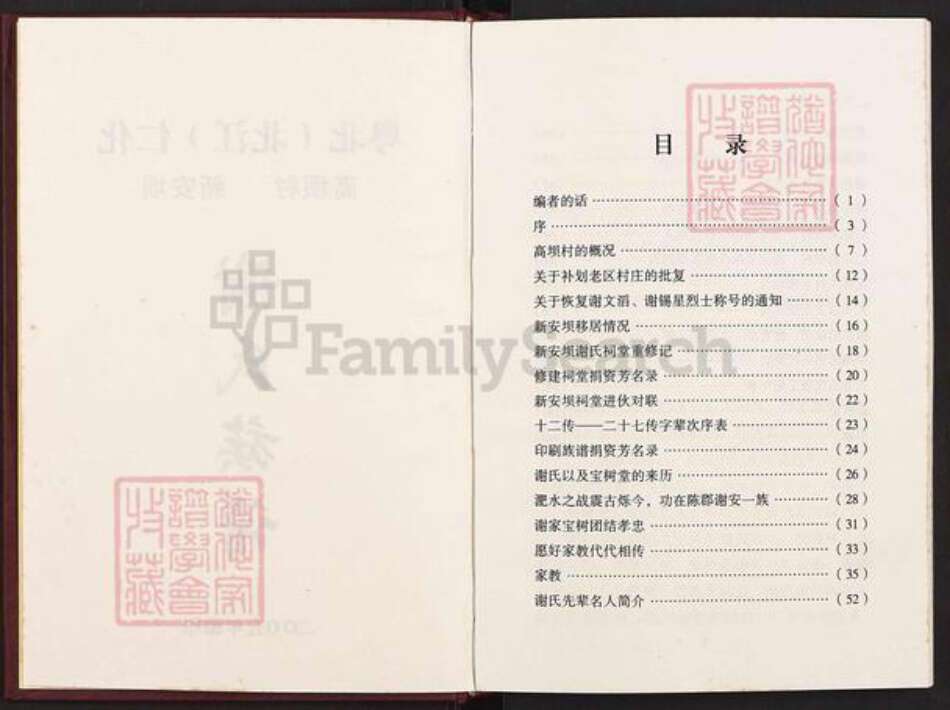 目 录
编者的话 ……………………………… ( 1 )
序 ……………………………… ( 3 )
高坝村的概况 ……………………………… ( 7 )
关于补划老区村庄的批复 ……………………………… ( 12 )
关于恢复谢文滔、谢锡星烈士称号的通知 ……… ( 14 )
新安坝移居情况 ……………………………… ( 16 )
新安坝谢氏祠堂重修记 ……………………………… ( 18 )
修建祠堂捐资芳名录 ……………………………… ( 20 )
新安坝祠堂进伙对联 ……………………………… ( 22 )
十二传——二十七传字辈次序表 ……………… ( 23 )
印刷族谱捐资芳名录 ……………………………… ( 24 )
谢氏以及宝树堂的来历 ……………………………… ( 26 )
淝水之战震古烁今，功在陈郡谢安一族 ……… ( 28 )
谢家宝树团结孝忠 ……………………………… ( 31 )
愿好家教代代相传 ……………………………… ( 33 )
家教 ……………………………… ( 35 )
谢氏先辈名人简介 ……………………………… ( 52 )
FamilySearch